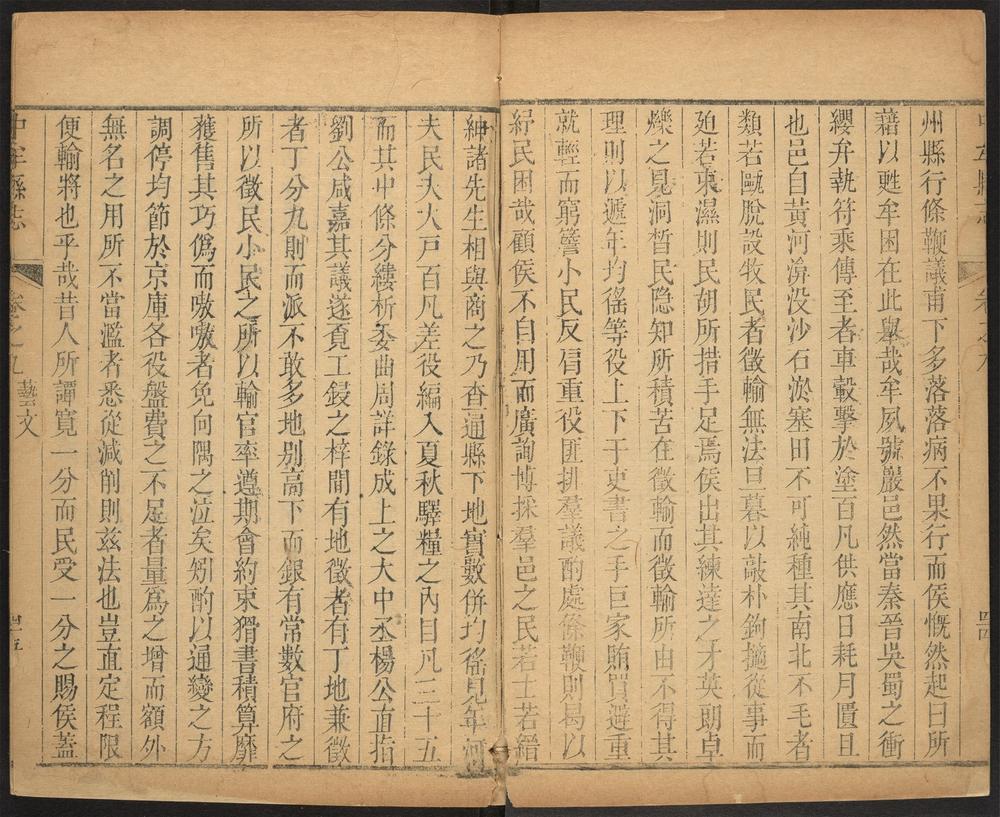 中牟縣志
卷之九
四十四
州縣行條鞭議甫下多落落病不果行而侯慨然起曰所
藉以甦牟困在此舉哉牟夙號嚴邑然當秦晉吳蜀之衝
纓弁執符乘傳至者車轂擊於塗百凡供應日耗月匱且
也邑自黃河渰没沙石淤塞田不可純種其南北不毛者
類若甌脫設牧民者徵輸無法旦暮以敲朴鉤擿從事而
廹若束濕則民胡所措手足焉侯出其練達之才英朗卓
爍之見洞晳民隐知所積苦在徵輸而徵輸所由不得其
理則以遞年均徭等役上下于吏書之手巨家賄買避重
就輕而窮簷小民反肩重役匪排羣議酌處條鞭則曷以
紓民困哉顧侯不自用而廣詢博採羣邑之民若士若縉
紳諸先生相與商之乃查通縣下地實數併均徭見年河
夫民夫大戸百凡差役編入夏秋驛糧之內目凡三十五
而其中條分縷析委曲周詳錄成上之大中丞楊公直指
劉公咸嘉其議遂覔工鋟之梓間有地徵者有丁地兼徵
者丁分九則而派不敢多地别高下而銀有常數官府之
所以徵民小民之所以輸官率遵期會約束猾書積算靡
獲售其巧僞而嗷嗷者免向隅之泣矣矧酌以通變之方
調停均節於京庫各役盤費之不足者量爲之增而額外
無名之用所不當濫者悉從減削則兹法也豈直定程限
便輸將也乎哉昔人所譚寛一分而民受一分之賜侯葢
中牟縣志
卷之九
藝文
四十五